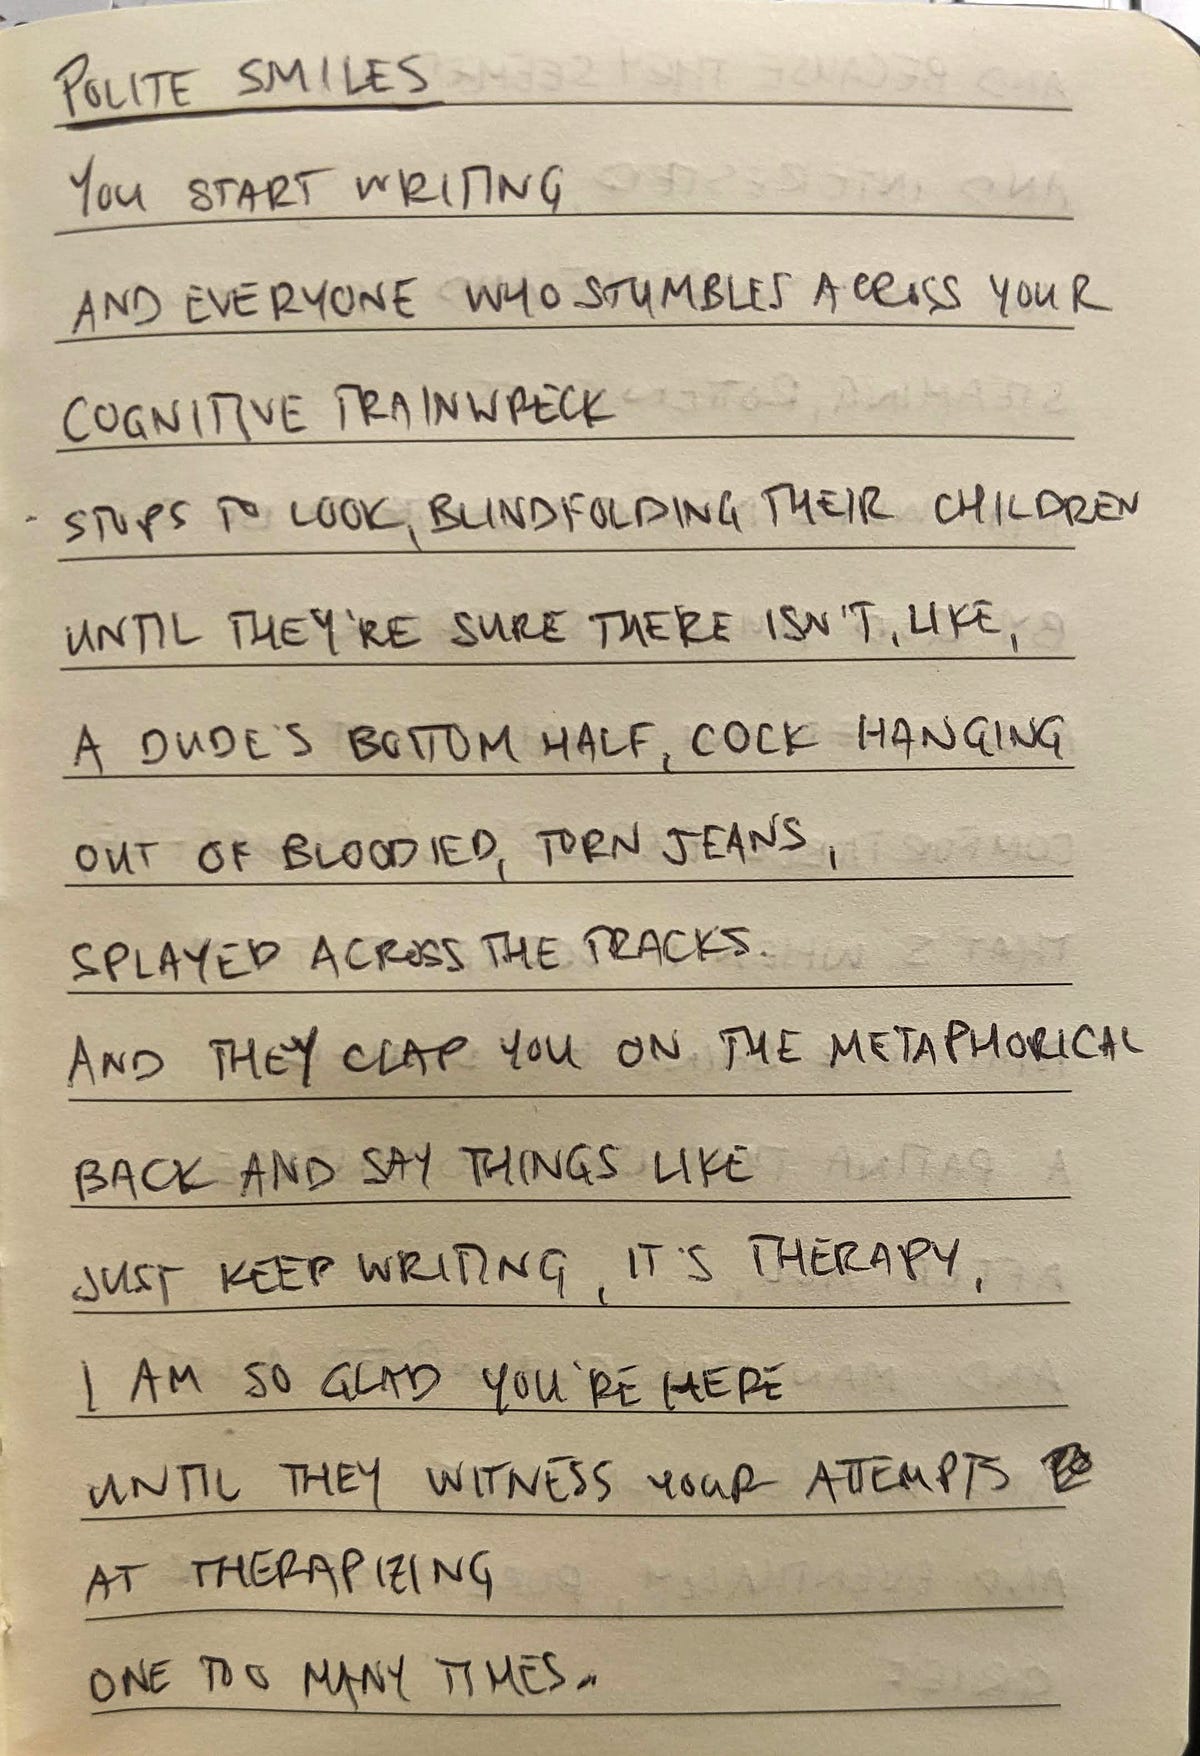 POLITE SMILES
YOU START WRITING
AND EVERYONE WHO STUMBLES ACROSS YOUR
COGNITIVE TRAINWRECK
STOPS TO LOOK, BLINDFOLDING THEIR CHILDREN
UNTIL THEY'RE SURE THERE ISN'T, LIKE,
A DUDE'S BOTTOM HALF, COCK HANGING
OUT OF BLOODIED, TORN JEANS,
SPLAYED ACROSS THE TRACKS.
AND THEY CLAP YOU ON THE METAPHORICAL
BACK AND SAY THINGS LIKE
JUST KEEP WRITING, IT'S THERAPY,
I AM SO GLAD YOU'RE HERE
UNTIL THEY WITNESS YOUR ATTEMPTS
AT THERAPIZING
ONE TOO MANY TIMES.